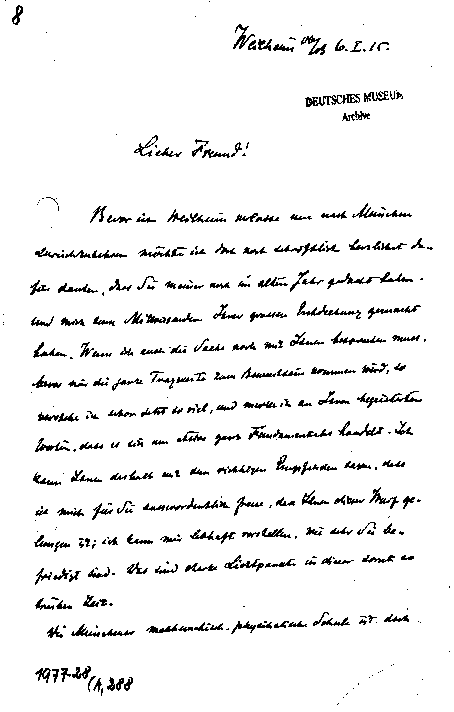 8
Weilheim Obb 6. I. 15.
DEUTSCHES MUSEUM
Archive
Lieber Freund!
Bevor ich Weilheim verlasse um nach München
zurückzukehren möchte ich doch noch schriftlich herzlichst da-
für danken, dass Sie meiner noch im alten Jahr gedacht haben
und mich zum Mitwissenden Ihrer grossen Entdeckung gemacht
haben. Wenn ich auch die Sache noch mit Ihnen besprechen muss,
bevor mir die ganze Tragweite zum Bewusstsein kommen wird, so
verstehe ich schon jetzt so viel, und merke ich an Ihren begeisterten
Worten, dass es sich um etwas ganz Fundamentales handelt. Ich
kann Ihnen deshalb mit dem richtigen Empfinden sagen, dass
ich mich für Sie ausserordentlich freue, dass Ihnen dieser Wurf ge-
lungen ist; ich kann mir lebhaft vorstellen, wie sehr Sie be-
friedigt sind. Das sind starke Lichtpunkte in dieser sonst so
trüben Zeit.
Die Münchener mathematisch-physikalische Schule ist doch
1977-28/A,288